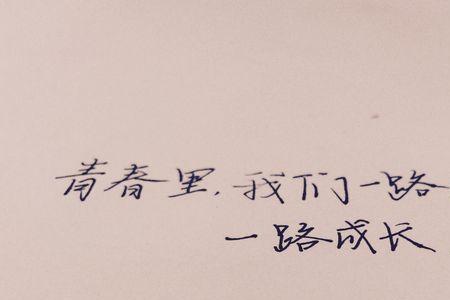 青春里，我们一路
一路成长